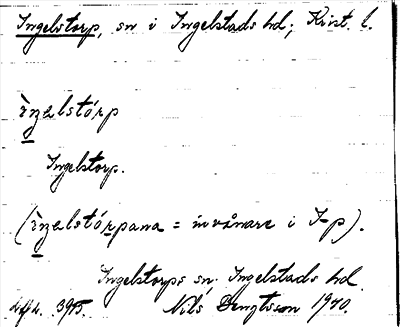 Ingelstorp, sn i Ingelstads hd; Krist. l.
ìŋəlstórp
Ingelstorp.
(ìŋəlstórpana = invånare i I-p).
Ingelstorps sn, Ingelstads hd
Nils Bengtsson 1940.